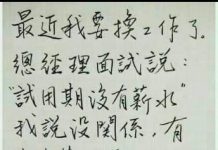 最近我要換工作了。
總經理面試說：
"試用期沒有薪水"
我說没關係，有